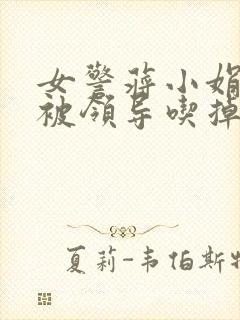 女警蒋小娟
被领导喫掉
夏莉-韦伯斯特